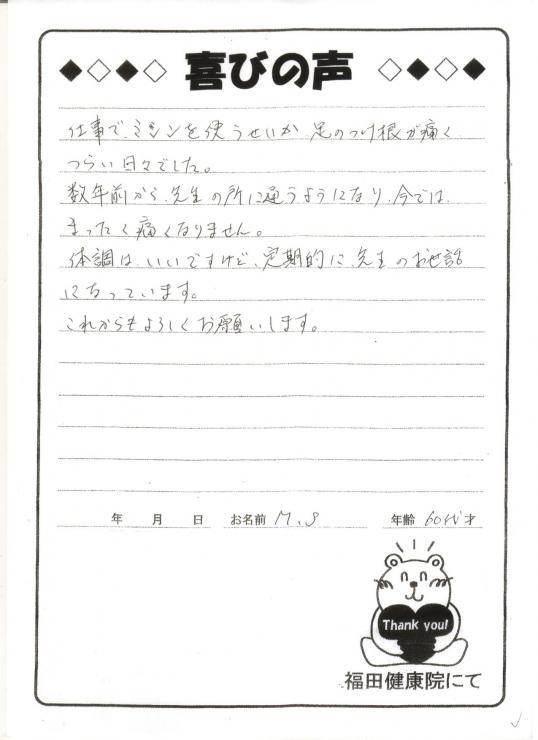 ◆◇◆◇ 喜びの声 ◇◆◇◆
仕事で、ミシンを使うせいか 足のつけ根が痛く
つらい日々でした。
数年前から、先生の所に通うようになり、今では、
まったく痛くなりません。
体調は、いいですけど、定期的に、先生のお世話
になっています。
これからもよろしくお願いします。
年 月 日 お名前 M.S 年齢 60代才
Thank you!
福田健康院にて